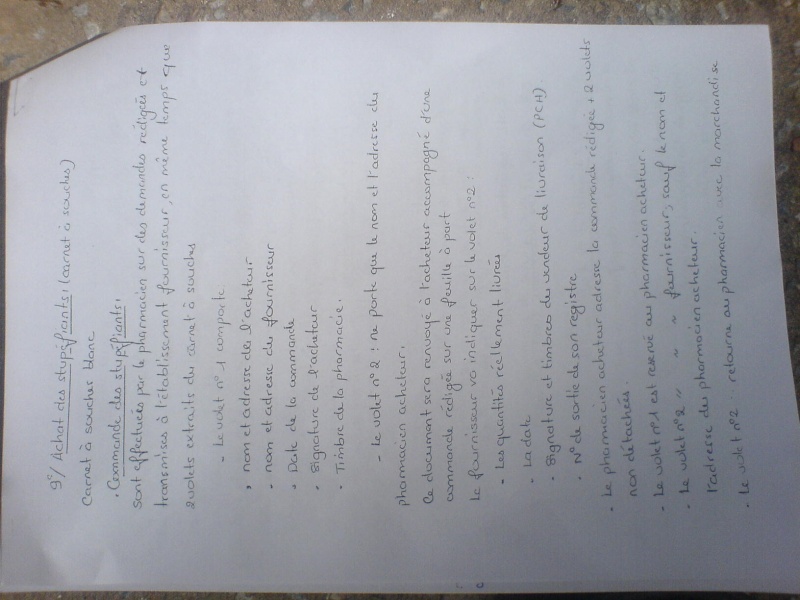 9°/ Achat des stupéfiants: (carnet à souches)
Carnet à souches blanc
• Commande des stupéfiants:
sont effectuées par le pharmacien sur des demandes rédigées et
transmises à l'établissement fournisseur, en même temps que
2 volets extraits du carnet à souches
- Le volet n° 1 comporte:
• nom et adresse de l'acheteur
• nom et adresse du fournisseur
• Date de la commande
• Signature de l'acheteur
• Timbre de la pharmacie.
- Le volet n° 2 : ne porte que le nom et l'adresse du
pharmacien acheteur.
Ce document sera renvoyé à l'acheteur accompagné d'une
commande rédigée sur une feuille à part
Le fournisseur va indiquer sur le volet n°2 :
• Les quantités réellement livrées
• La date
• Signature et timbres du vendeur de livraison (PCH).
• N° de sortie de son registre
• Le pharmacien acheteur adresse la commande rédigée + 2 volets
non détachées.
• Le volet n°1 est reservé au pharmacien acheteur.
• Le volet n°2 " " " fournisseur, sauf le nom et
l'adresse du pharmacien acheteur.
• Le volet n°2 retourne au pharmacien avec la marchandise